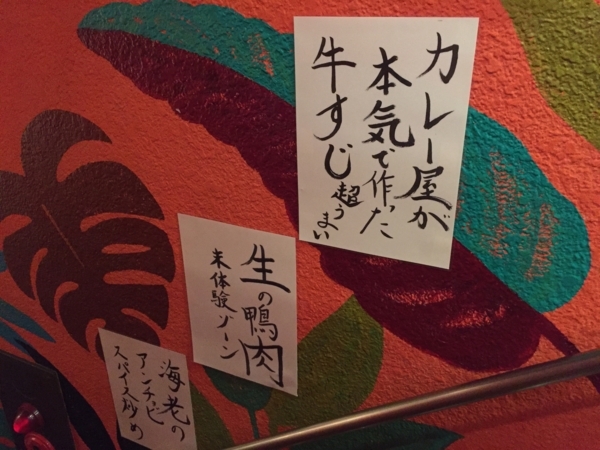 カレー屋が
本気で作った
牛すじ
超うまい
生の鴨肉
未体験ゾーン
海老の
アンチョビ
スパイス炒め